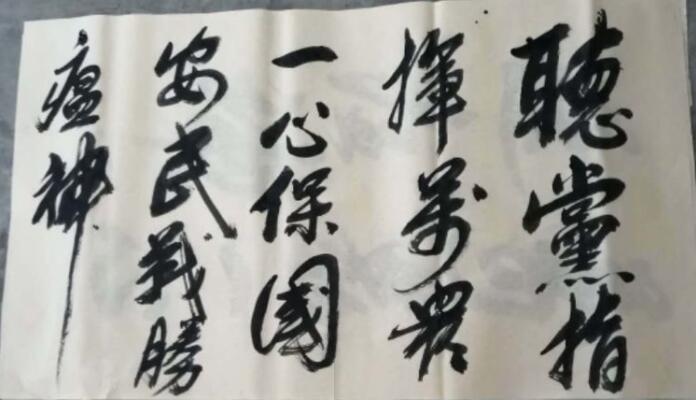 聽黨指
揮萬眾
一心保國
安民戰勝
瘟神